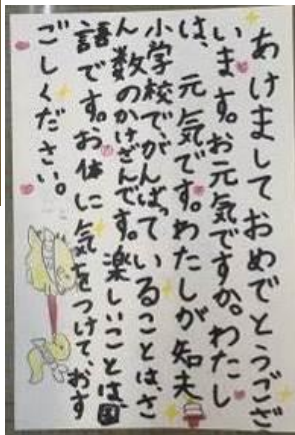 あけましておめでとうござ
います。お元気ですか。わたし
は、元気です。わたしが知夫
小学校で、がんばっていることは、さ
ん数のかけざんです。楽しいことは、国
語です。お体に気をつけて、おす
ごしください。